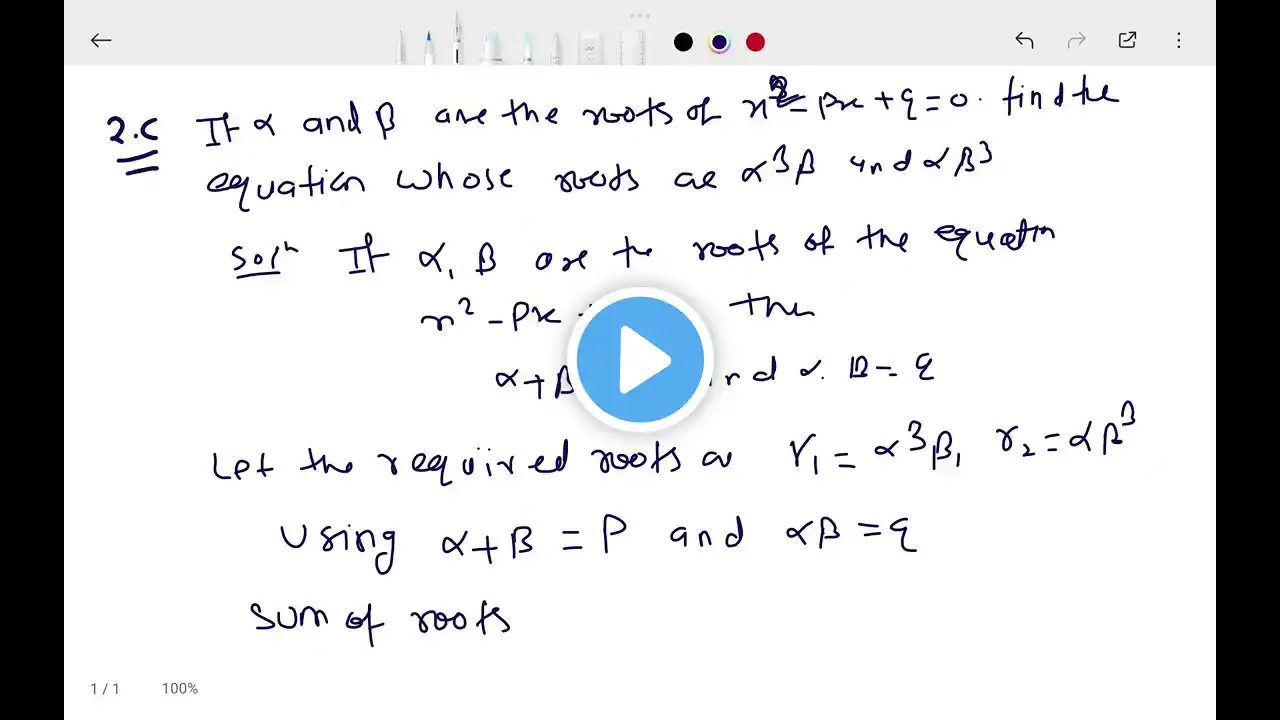 2.c If α and β are the roots of x² - px + q = 0. find the
equation whose roots are α³β and αβ³
Solⁿ If α, β are the roots of the equatin
x² - Px the
α + β and α. β = q
Let the required roots a r₁ = α³β, r₂ = αβ³
Using α + β = P and αβ = q
Sum of roots
1 / 1 100%